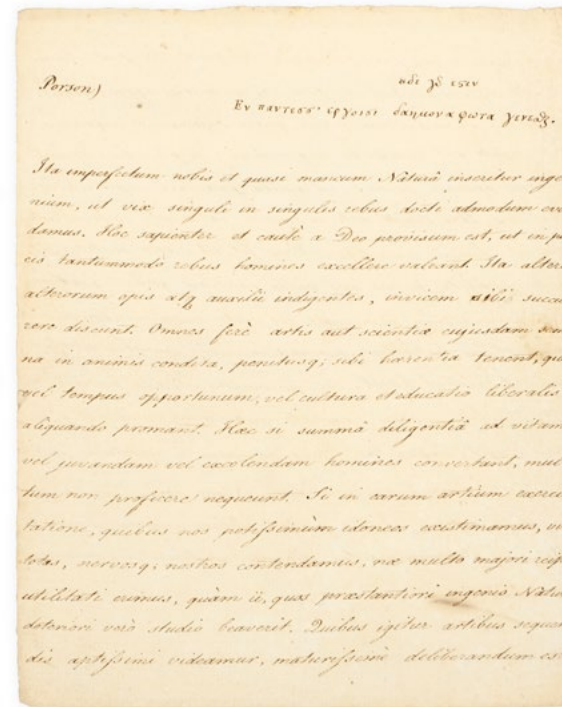 Porson)
Εν παντεσσ' εργοισι δαημονα φωτα γενεσθ.
Ita imperfectum nobis et quasi mancum Naturâ inseritur inge
nium, ut vix singuli in singulis rebus docti admodum eva
damus. Hoc sapienter et cautè a Deo provisum est, ut in pau
cis tantummodo rebus homines excellere valeant. Ita alteri
alterorum opis atq auxilii indigentes, invicem sibi succur
rere discunt. Omnes ferè artis aut scientiæ cujusdam semi
na in animis condita, penitusq; sibi hærentia tenent, quæ
vel tempus opportunum, vel cultura et educatio liberalis
aliquando promant. Hæc si summâ diligentiâ ad vitam
vel juvandam vel excolendam homines convertant, mul
tum non proficere nequeunt. Si in earum artium exerci
tatione, quibus nos potissimùm idoneos existimamus, vi
totas, nervosq; nostros contendamus, næ multo majori reip
utilitati erimus, quàm ii, quos præstantiori ingenio Natu
deteriori verò studio beaverit. Quibus igitur artibus sequen
dis aptissimi videamur, maturissimè deliberandum est